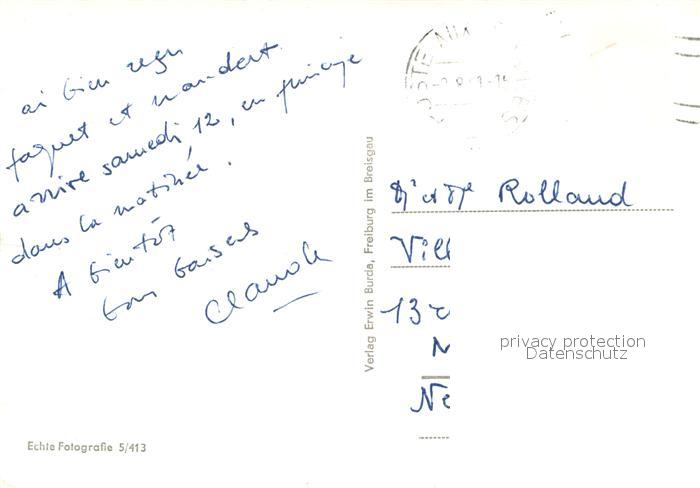 ai bien reçu
paquet et mandat.
arrive samedi 12, en principe
dans la matinée.
A bientôt
bons baisers
Claude
Verlag Erwin Burda, Freiburg im Breisgau
Rolland
Vill
13
N
Ne
privacy protection
Datenschutz
Echte Fotografie 5/413